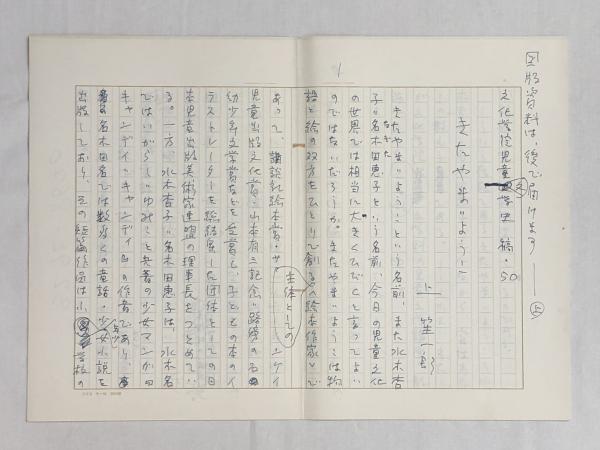 図版資料は、後で届けます 上
文化学院児童文学史 稿・50
きたやまようこ
上 笙一郎
きたやまようこという名前、また水木杏
子=名木田恵子という名前、今日の児童文化
なぎた
の世界では相当に大きくひびくと言ってよい
のではないだろうか。きたやまようこは物
語と絵の双方をひとりで創る〈絵本作家〉で
あって、講談社絵本賞・サンケイ
児童出版文化賞・山本有三記念〈路傍の石〉
幼少年文学賞などを受賞し、子どもの本のイ
ラストレーターを総結集した団体としての日
主体としての
本児童出版美術家連盟の理事長をつとめてい
る。一方、水木杏子=名木田恵子は、水木名
ではいがらしゆみこと共著の少女マンガ『
キャンディ・キャンディ』の作者であり、
名木田名では数多くの童話・少女小説を
出版しており、その短篇作品は小学校の
1